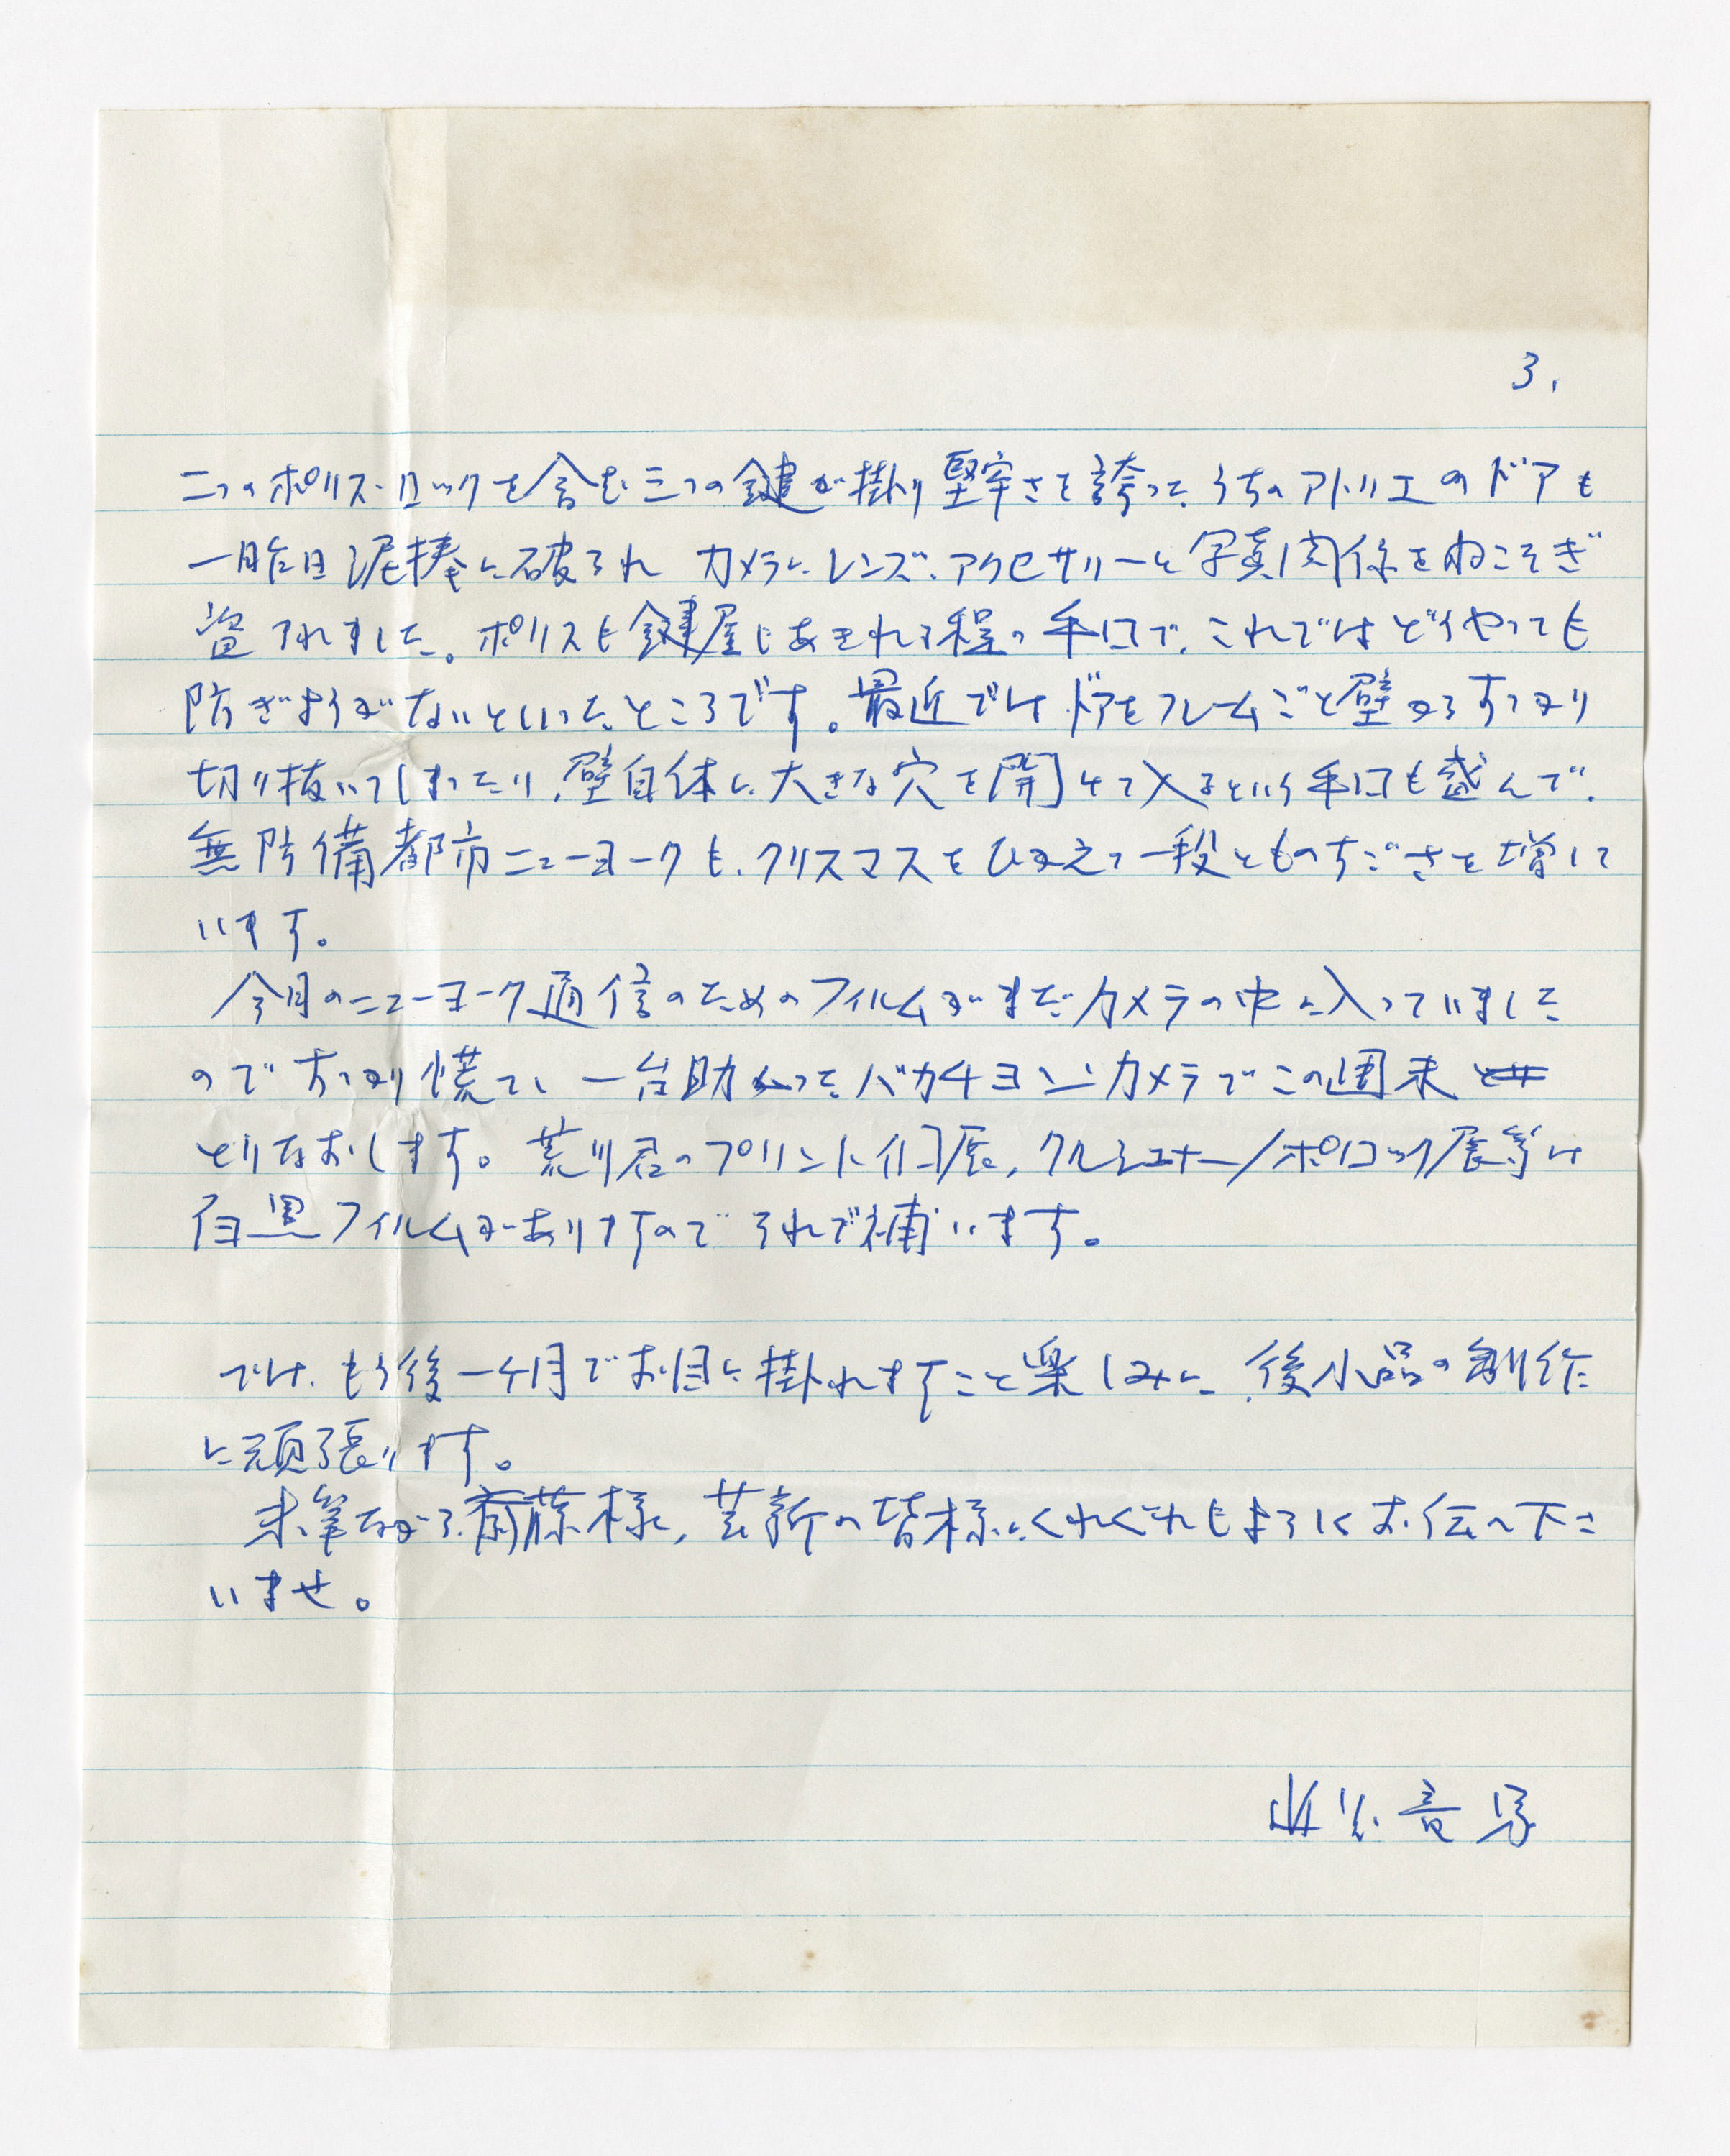 3.
二つのポリス・ロックを含む三つの鍵が掛り堅牢さを誇った、うちのアトリエのドアも
一昨日泥棒に破られ カメラに、レンズ、アクセサリーと写真関係をねこそぎ
盗られました。ポリスも鍵屋もあきれる程の手口で、これではどうやっても
防ぎようがないといったところです。最近ではドアをフレームごと壁からすっかり
切り抜いてしまったり、壁自体に大きな穴を開けて入るという手口も盛んで、
無防備都市ニューヨークも、クリスマスをひかえて一段とものすごさを増して
います。
今月のニューヨーク通信のためのフィルムがまだカメラの中に入っていました
のですっかり慌て、一台助かったバカチョン・カメラでこの週末
とりなおします。荒川君のプリント個展、クレシュナー/ポロック展等は
白黒フィルムがありますのでそれで補います。
では、もう後一ケ月でお目に掛れますこと楽しみに、後小品の制作
に頑張ります。
末筆ながら、斎藤様、芸新の皆様にくれぐれもよろしくお伝へ下さ
いませ。
近藤竜男